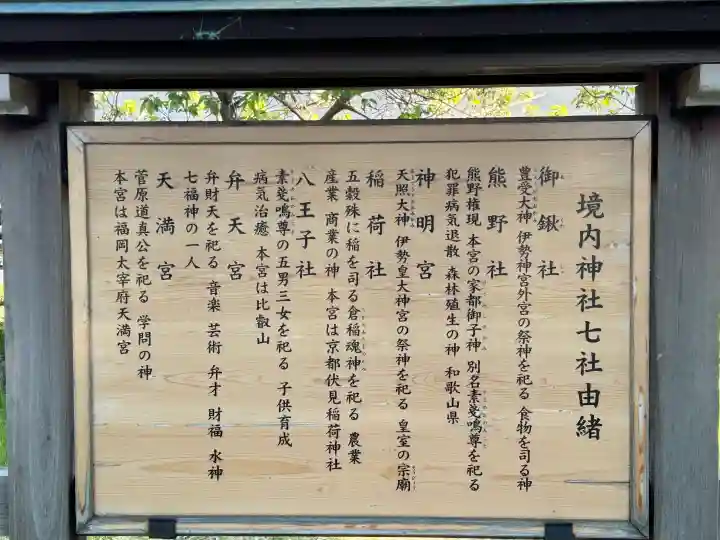 境内神社七社由緒
御鍬社
豊受大神 伊勢神宮外宮の祭神を祀る 食物を司る神
熊野社
熊野権現 本宮の家都御子神 別名素戔鳴尊を祀る
犯罪病気退散 森林殖生の神 和歌山県
神明宮
天照大神 伊勢皇大神宮の祭神を祀る 皇室の宗廟
稲荷社
五穀殊に稲を司る倉稲魂神を祀る 農業
産業 商業の神 本宮は京都伏見稲荷神社
八王子社
素戔鳴尊の五男三女を祀る 子供育成
病気治癒 本宮は比叡山
弁天宮
弁財天を祀る 音楽 芸術 弁才 財福 水神
七福神の一人
天満宮
菅原道真公を祀る 学問の神
本宮は福岡太宰府天満宮